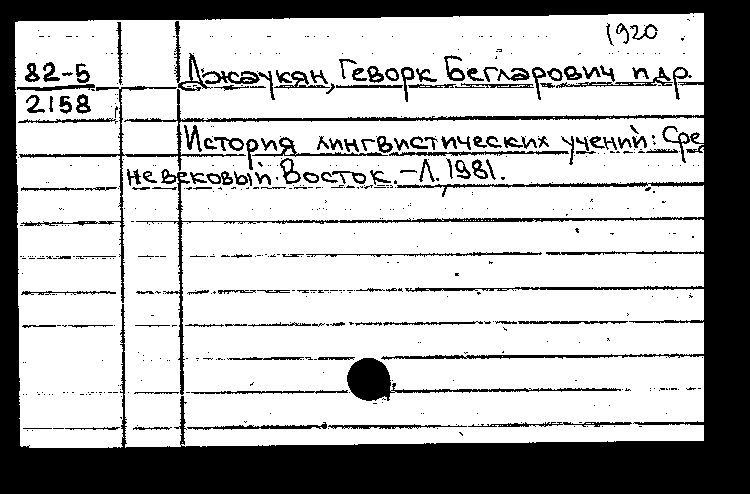 1920
82-5
Джаукян, Геворк Бегларович и др.
2158
История лингвистических учений: Сре
невековый Восток. - Л. 1981.